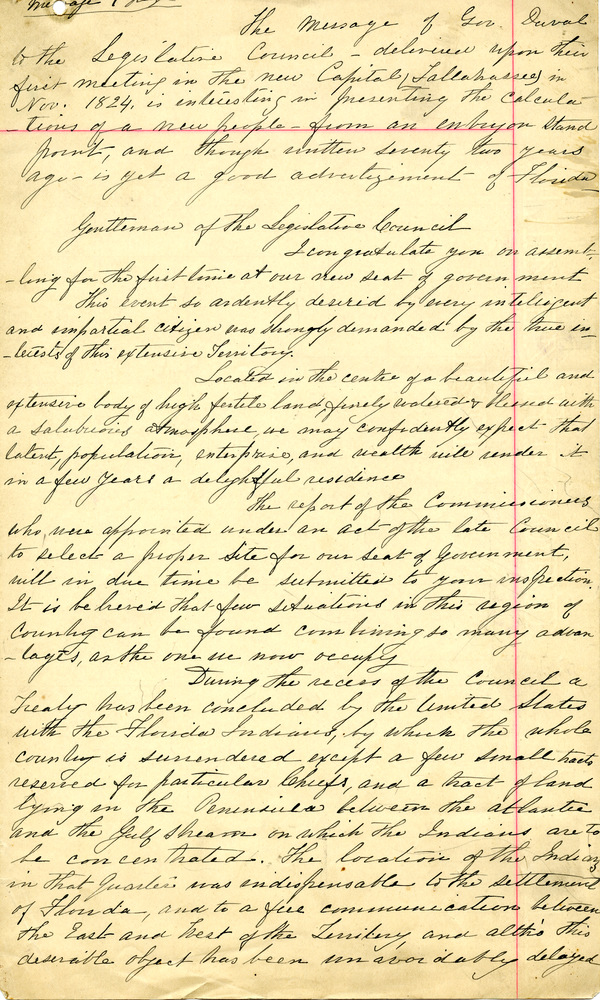 Message
The Message of Gov. Duval
to the Legislative Council - delivered upon their
first meeting in the new Capital, Tallahassee, in
Nov. 1824, is interesting in presenting the calcula-
-tions of a new people - from an embryon stand
point, and though written seventy two years
ago - is yet a good advertizement of Florida
Gentleman of the Legislative Council
I congratulate you on assemb-
-ling for the first time at our new seat of government
This event so ardently desired by every intelligent
and impartial citizen was strongly demanded by the true in-
-terests of this extensive Territory.
Located in the centre of a beautiful and
extensive body of high fertile land, finely watered & blessed with
a salubrious atmosphere, we may confidently expect that
talent, population, enterprise, and wealth will render it
in a few years a delightful residence
The report of the Commissioners
who were appointed under an act of the late Council
to select a proper site for our seat of Government,
will in due time be submitted to your inspection.
It is believed that few situations in this region of
country can be found combining so many advan
-tages, as the one we now occupy
During the recess of the Council a
Treaty has been concluded by the United States
with the Florida Indians, by which the whole
country is surrendered except a few small tracts
reserved for particular Chiefs, and a tract of land
lying in the Peninsula between the atlantic
and the Gulf stream on which the Indians are to
be concentrated. The location of the Indians
in that quarter was indispensable to the settlement
of Florida, and to a free communication between
the East and West of the Territory, and altho this
desirable object has been unavoidably delayed